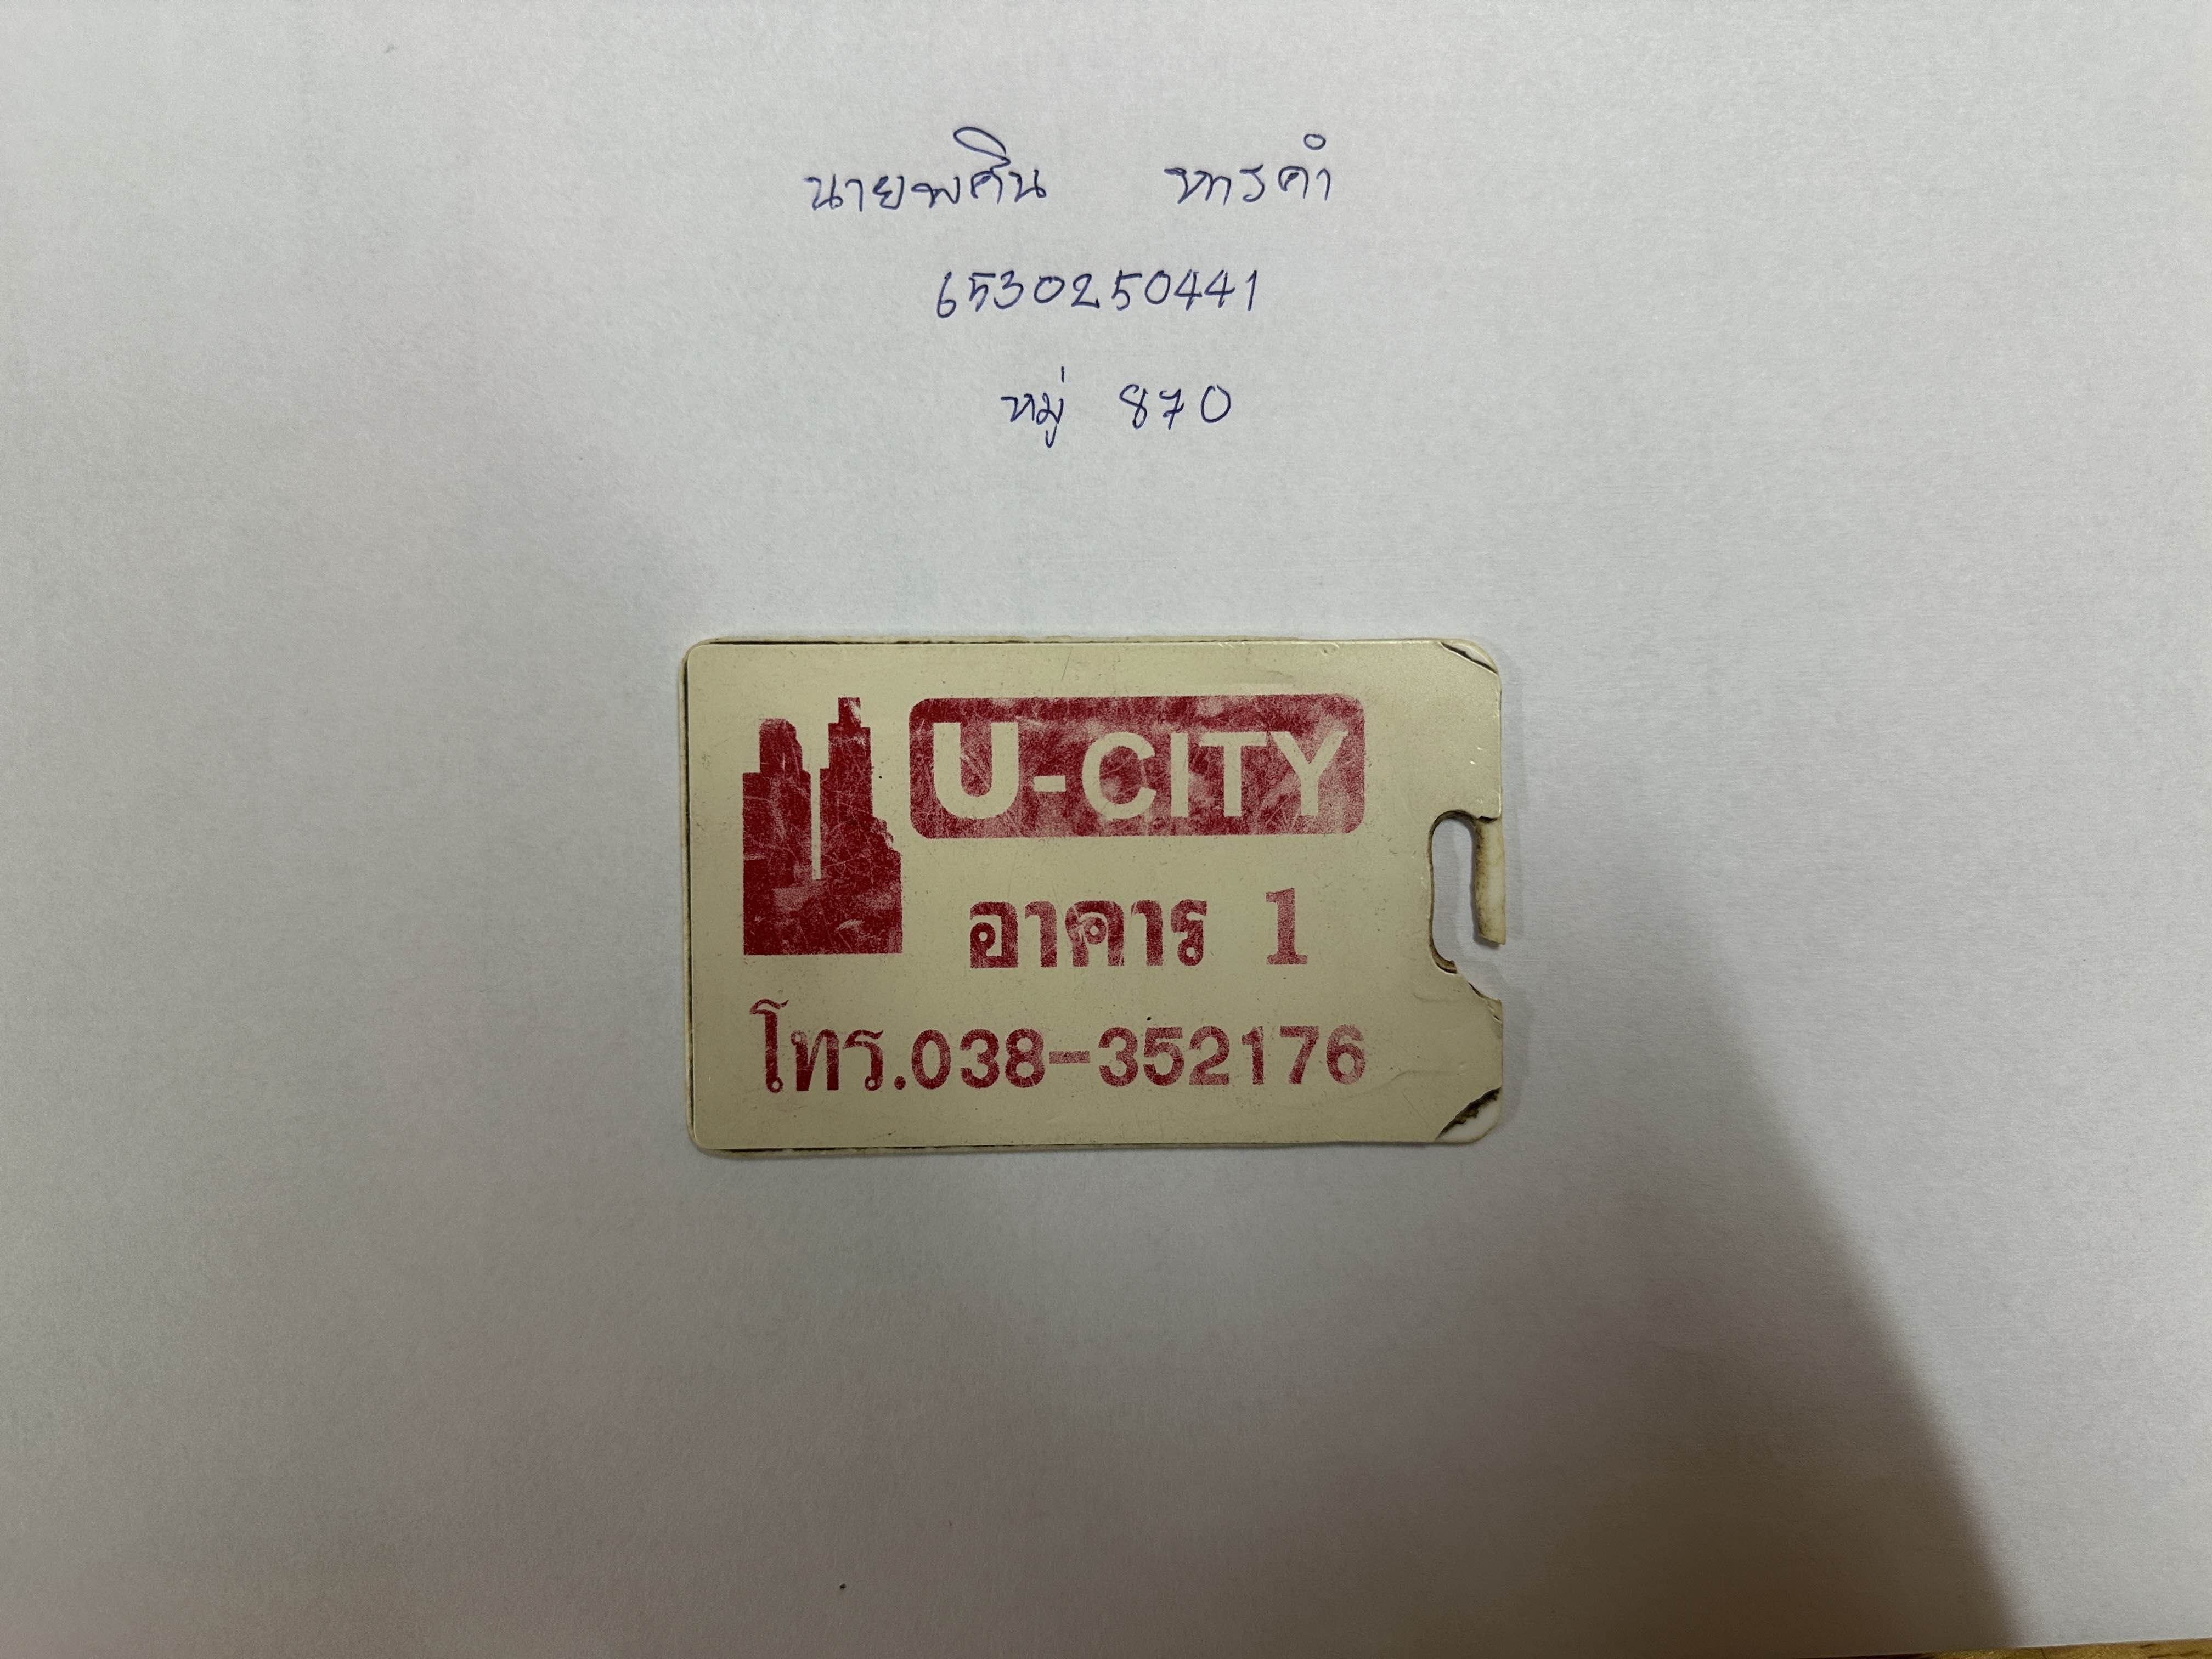 นายพศิน หารคำ
6530250441
หมู่ 870
U-CITY
อาคาร 1
โทร.038-352176